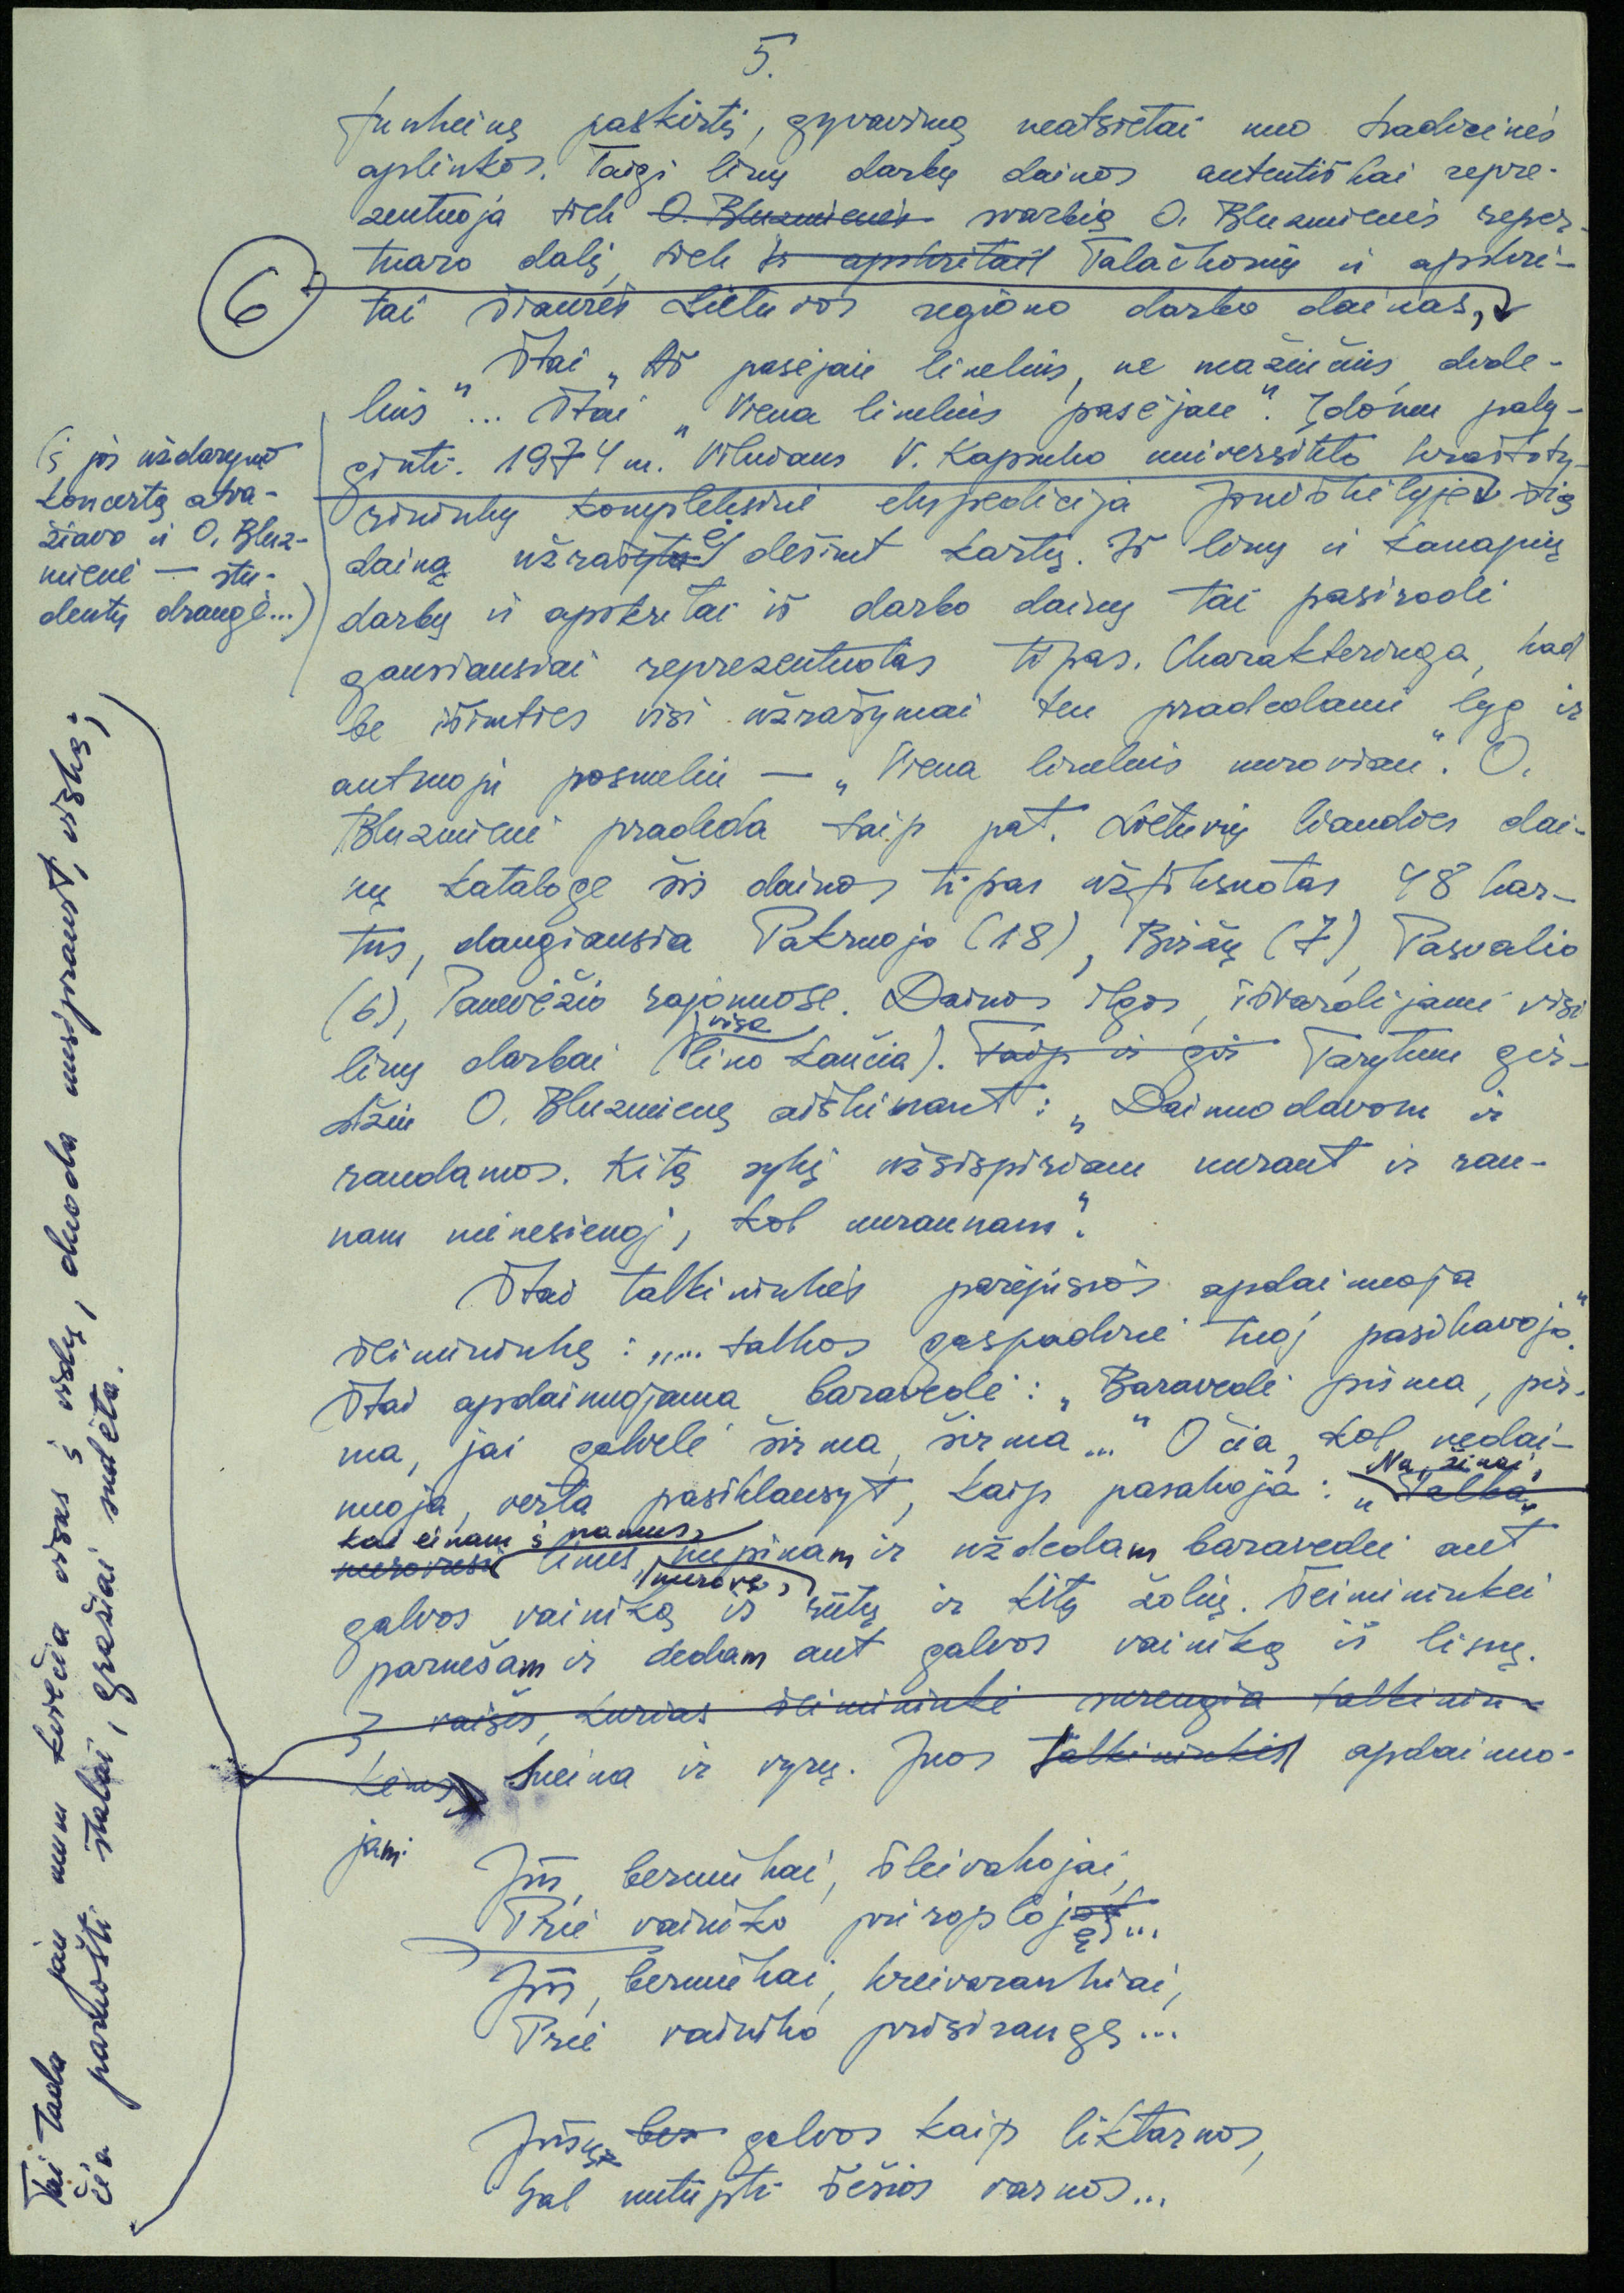 5.
funkcinę paskirtį, gyvavimą neatsietai nuo tradicinės
aplinkos. Taigi linų darbų dainos autentiškai repre-
zentuoja tiek O. Bluzmienės svarbią O. Bluzmienės reper-
tuaro dalį, tiek ir apskritai Talačkonių ir apskri-
6
tai Šiaurės Lietuvos regiono darbo dainas,
Štai „Aš pasėjau linelius, ne mažiučius, dide-
lius"... Štai „Viena linelius pasėjau". Įdomu paly-
ginti. 1974 m. Vilniaus V. Kapsuko universiteto kraštoty-
rininkų kompleksinė ekspedicija Joniškėlyje šią
(į jos uždarymo
koncertą atva-
žiavo ir O. Bluz-
mienė — stu-
dentų draugė...)
dainą užrašytaė dešimt kartų. Iš linų ir kanapių
darbų ir apskritai iš darbo dainų tai pasirodė
gausiausiai reprezentuotas tipas. Charakteringa, kad
be išimties visi užrašymai ten pradedami lyg ir
antruoju posmeliu — „Viena linelius nuroviau". O.
Bluzmienė pradeda taip pat. Lietuvių liaudies dai-
nų kataloge šis dainos tipas užfiksuotas 48 kar-
tus, daugiausia Pakruojo (18), Biržų (7), Pasvalio
(6), Panevėžio rajonuose. Dainos ilgos, išvardijami visi
linų darbai (visa lino kančia). Taip ir gir Tarytum gir-
džiu O. Bluzmienę aiškinant: „Dainuodavom ir
raudamos. Kitą sykį užsispiriam nuraut ir rau-
nam mėnesienoj, kol nuraunam".
Štai talkininkės parėjusios apdainuoja
šeimininkę: „... talkos gaspadinė tuoj pasikavoja".
Štai apdainuojama baravedė: „Baravedė pirma, pir-
ma, jai galvelė širma, širma..." O čia, kol nedai-
nuoja, verta pasiklausyt, kaip pasakoja: „Talka Na, žinai,
kai einam į namus,
nurovusi linus, nurovę, nupinam ir uždedam baravedei ant
galvos vainiką iš rūtų ir kitų žolių. Šeimininkei
parnešam ir dedam ant galvos vainiką iš linų.
Į vaišes, kurias šeimininkė surengia talkinin-
kėms, Sueina ir vyrų. Juos talkininkės apdainuo-
jam:
Jūs, berniukai, šleivakojai,
Prie vainiko priroplojatę...
Jūs, berniukai, kreivarankiai,
Prie vainiko prisirangę...
Jūsų ber galvos kaip liktarnos,
Gal nutūpti šešios varnos...
Tai tada jau mum kviečia visus į vidų, duoda nusipraust, viską,
čia paruošti stalai, gražiai sudėta.